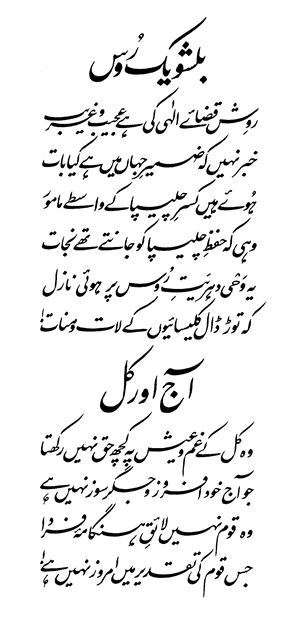 بلشویک رُوس
روِشِ قضائے الٰہی کی ہے عجیب و غریب
خبر نہیں کہ ضمیرِ جہاں میں ہے کیا بات
ہُوئے ہیں کسرِ چلیپا کے واسطے مامور
وہی کہ حفظِ چلیپا کو جانتے تھے نجات
یہ وحیِ دہریتِ رُوس پر ہوئی نازل
کہ توڑ ڈال کلیسائیوں کے لات و منات!
آج اور کل
وہ کل کے غم و عیش پہ کچھ حق نہیں رکھتا
جو آج خود افروز و جگر سوز نہیں ہے
وہ قوم نہیں لائقِ ہنگامۂ فردا
جس قوم کی تقدیر میں امروز نہیں ہے!